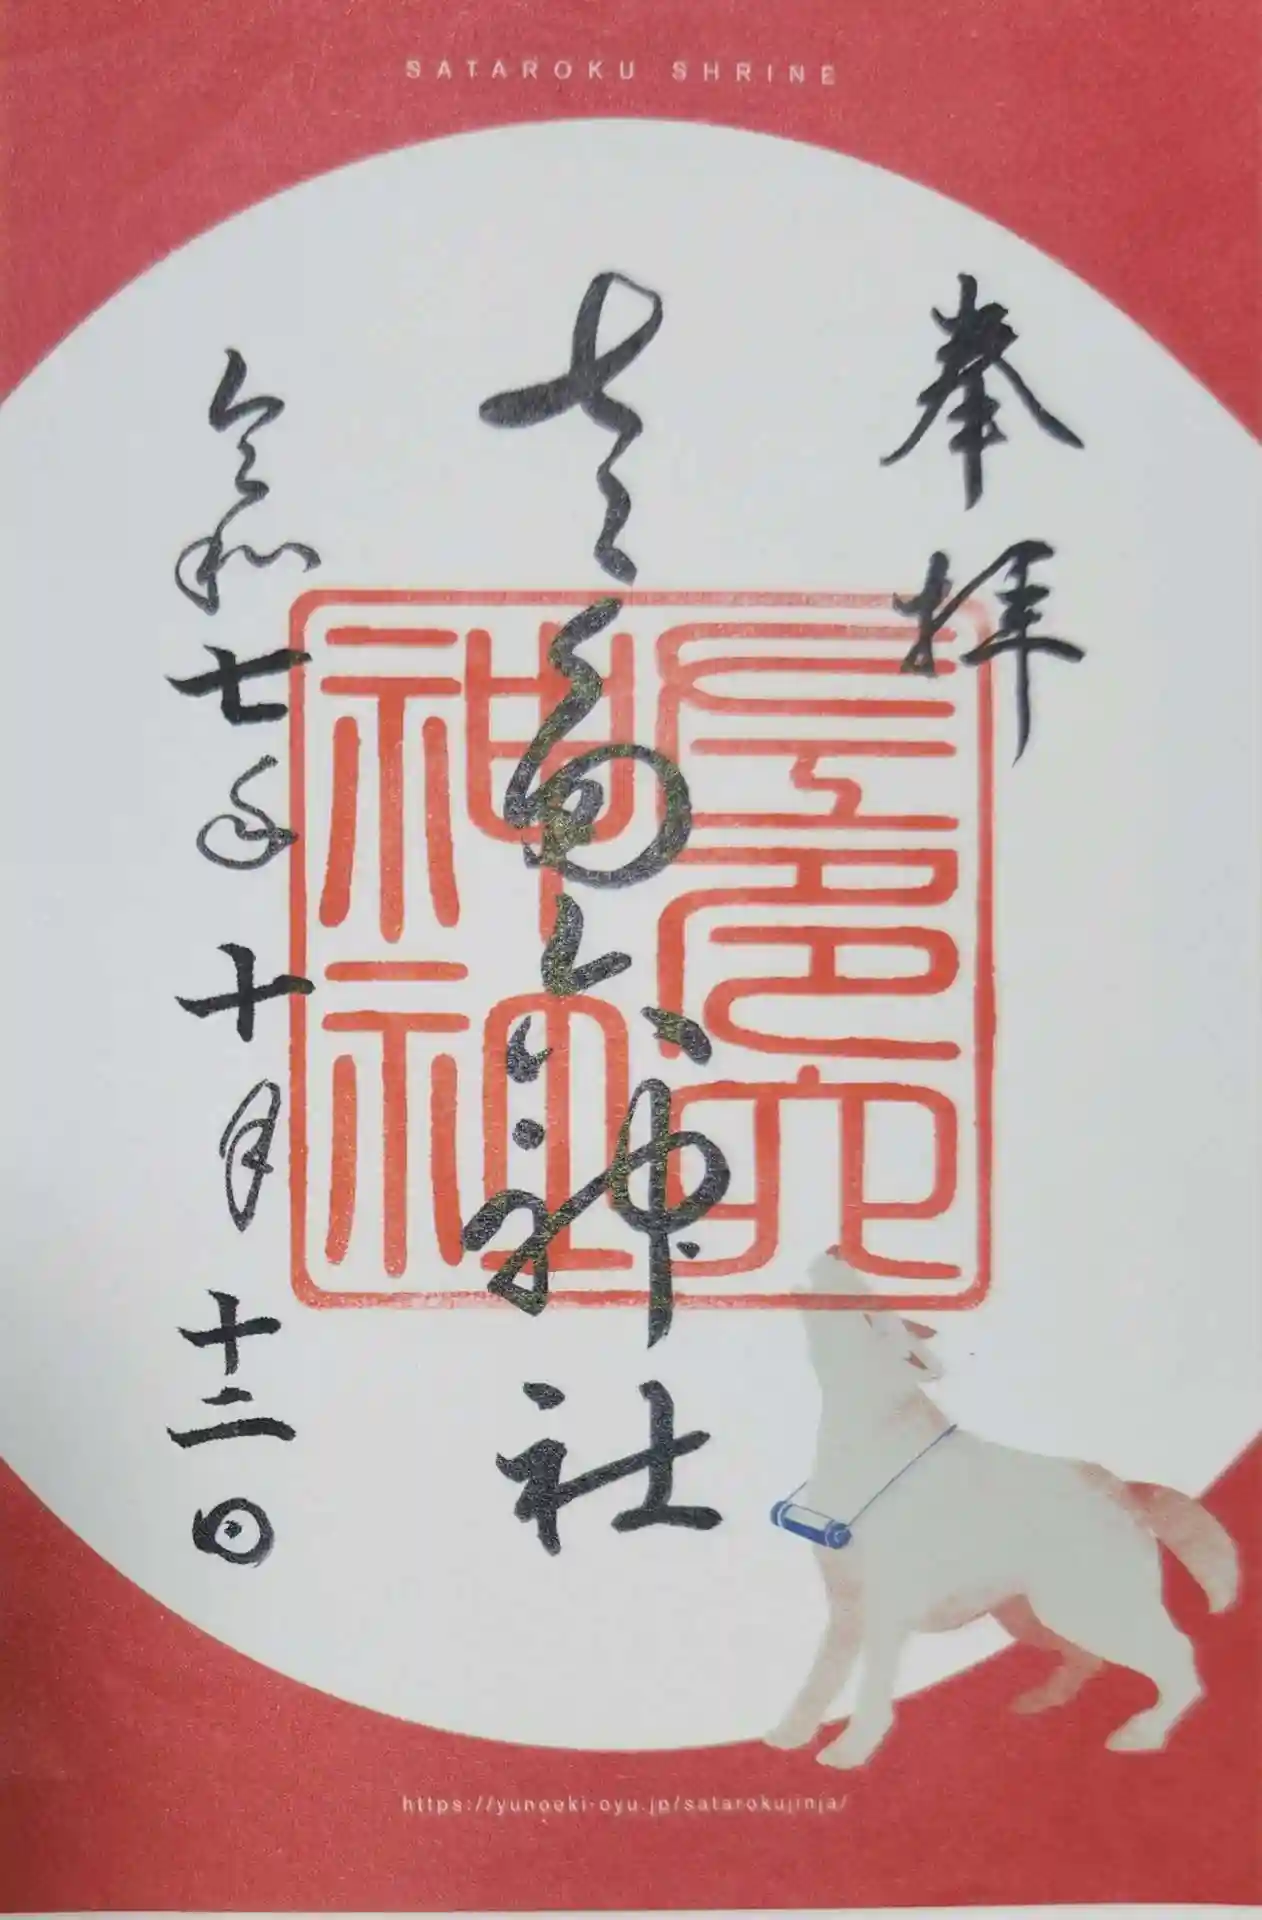 SATAROKU SHRINE
奉拝
左多六神社
左多六神社
令和七年十月十二日
https://yunoeki-oyu.jp/satarokujinja/